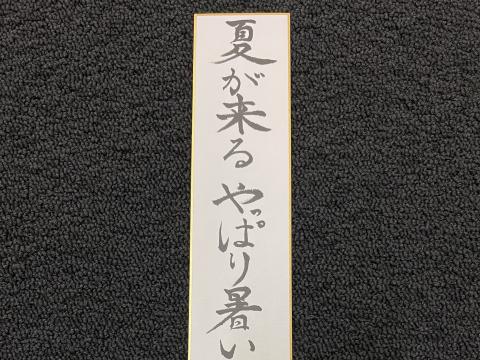 夏が来る やっぱり暑い